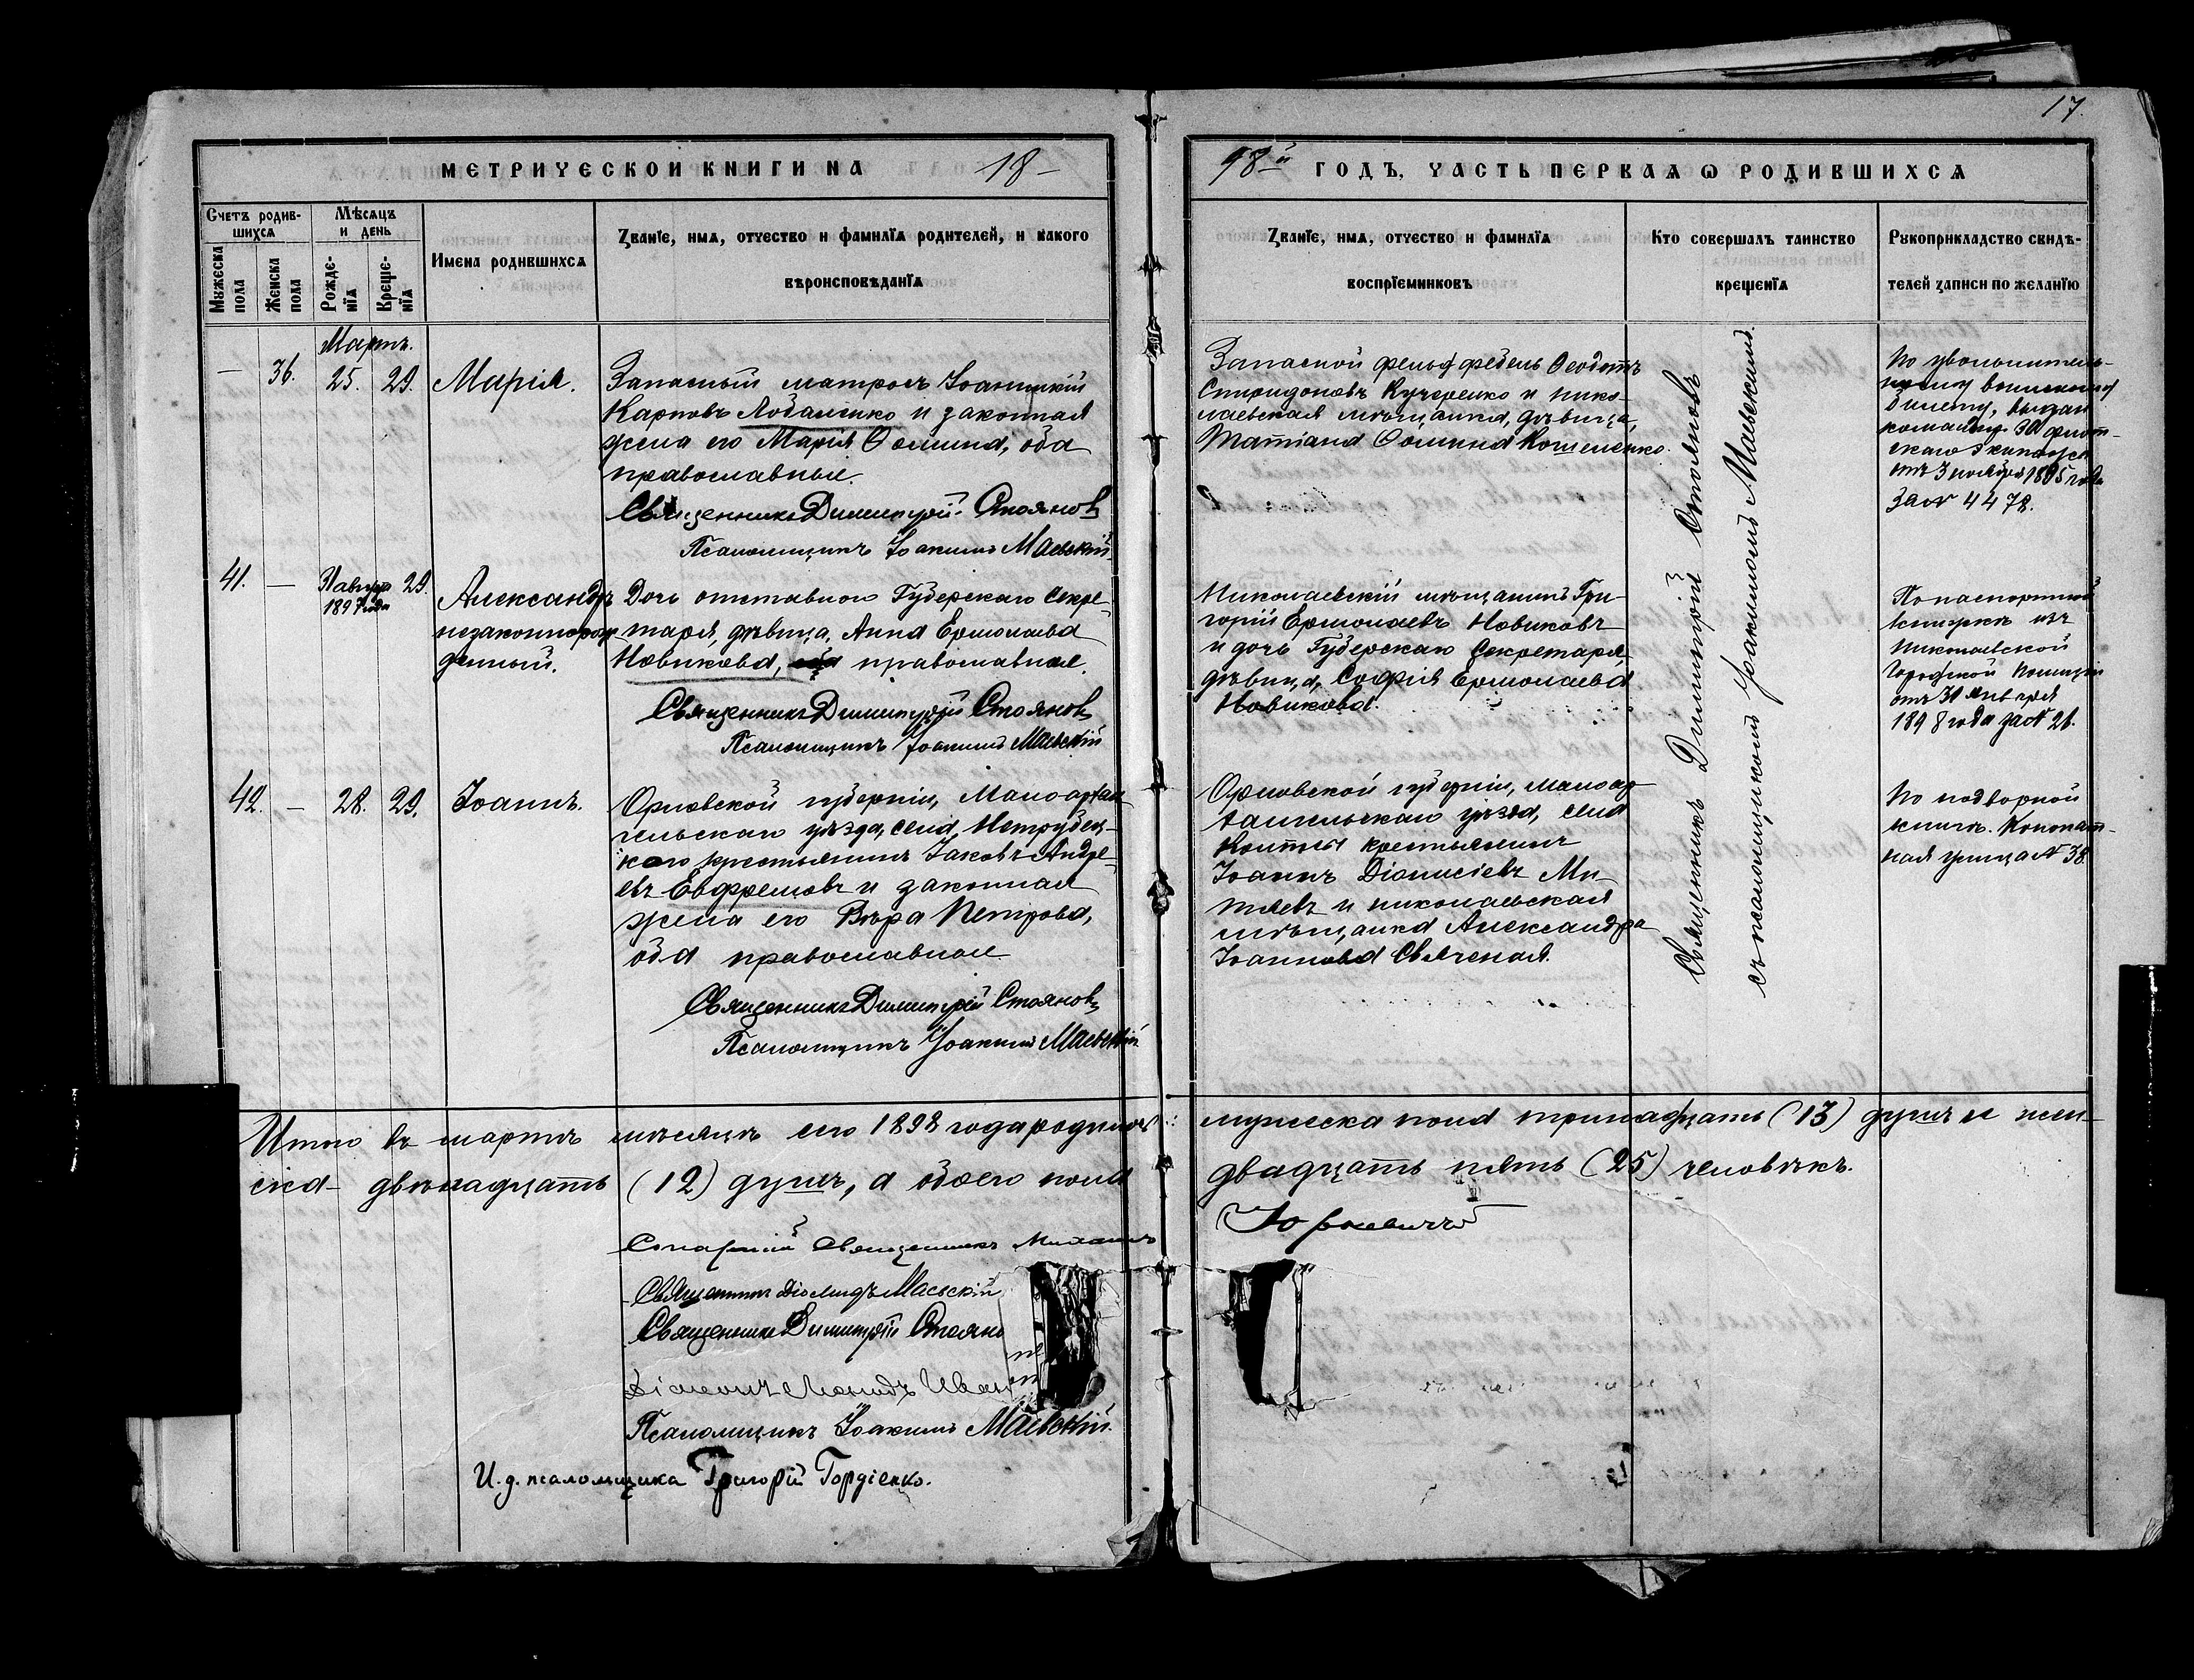 17.
МЕТРИЧЕСКОЙ КНИГИ НА 18-
98й ГОДЪ, ЧАСТЬ ПЕРВАЯ Ѡ РОДИВШИХСЯ
Счетъ родив-
шихся
Мужеска
пола
Женска
пола
Мѣсяцъ
и день
Рожде-
нїя
Креще-
нїя
Имена родившихся
Званїе, имя, отчество и фамилїя родителей, и какого
вѣроисповѣданїя
Званїе, имя, отчество и фамилїя
воспрїемниковъ
Кто совершалъ таинство
крещенїя
Рукоприкладство свидѣ-
телей записи по желанїю
Мартъ.
— 36. 25. 29. Марія.
Запасный матросъ Іоанникій
Карповъ Лобаченко и законная
жена его Марія Ѳомина, оба
православные.
Священникъ Димитрій Стояновъ
Псаломщикъ Іоакимъ Маевскій
Запасной фельдфебель Ѳеодотъ
Спиридоновъ Кучеренко и нико-
лаевская мѣщанка, дѣвица,
Татіана Ѳомина Кошеленко.
По увольнитель-
ному воинскому
билету,
отъ 3 ноября 1895 года
за № 4478.
41. — 31 августа 1897 года 29. Александръ
незаконнорож-
денный.
Дочь отставного Губерскаго Секре-
таря, дѣвица, Анна Ермолаева
Новикова, православная.
Священникъ Димитрій Стояновъ
Псаломщикъ Іоакимъ Маевскій
Николаевскій мѣщанинъ Гри-
горій Ермолаевъ Новиковъ
и дочь Губерскаго Секретаря,
дѣвица, Софія Ермолаева
Новикова.
По паспортной
книжкѣ изъ
Николаевской
Городской Полиціи
отъ 31 января
1898 года за № 26.
42. — 28. 29. Іоаннъ.
Орловской губерніи, Малоархан-
гельскаго уѣзда, села,
крестьянинъ Іаковъ Андре-
евъ Евфремовъ и законная
жена его Вѣра Петрова,
оба православные
Священникъ Димитрій Стояновъ
Псаломщикъ Іоакимъ Маевскій
Орловской губерніи, Малоар-
хангельскаго уѣзда, села
крестьянинъ
Іоаннъ Діонисіевъ Ми-
тяевъ и николаевская
мѣщанка Александра
Іоаннова
По подворной
книгѣ.
улица № 38.
Священникъ Димитрій Стояновъ
съ псаломщикомъ Іоакимомъ Маевскимъ.
Итого въ мартѣ мѣсяцѣ сего 1898 года родилось мужеска пола тринадцать (13) душъ и жен-
ска двѣнадцать (12) душъ, а обоего пола двадцать пять (25) человѣкъ.
Священникъ Михаилъ Юркевичъ
Священникъ Діомидъ Маевскій
Священникъ Димитрій Стоянов
Діаконъ Леонидъ Иван
Псаломщикъ Іоакимъ Маевскій.
И. д. псаломщика Григорій Гордіенко.